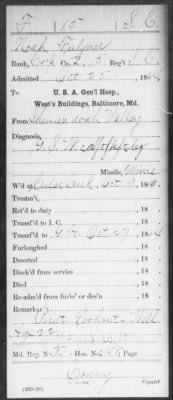 F 15 S. C.
Noah Fulmer
Rank, Corp Co. Reg't S. C.
Admitted Oct 25, 1864,
To
U. S. A. Gen'l Hosp.
West's Buildings, Baltimore, Md.
From Shenandoah Valley
Diagnosis,
G. S.
Missile, Minie
W'd at Cedar Creek, Oct 19, 1864.
Treatm't,
Ret'd to duty , 18 .
Transf'd to I. C. , 18 .
Transf'd to G. H. Oct 27, 1864
Furloughed , 18 .
Deserted , 18 .
Disch'd from service , 18 .
Died , 18 .
Re-adm'd from furlo' or des'n , 18 .
Remarks:
Point Lookout Md.
Age 22
Md. Reg. No. Hos. No.
Copyist.